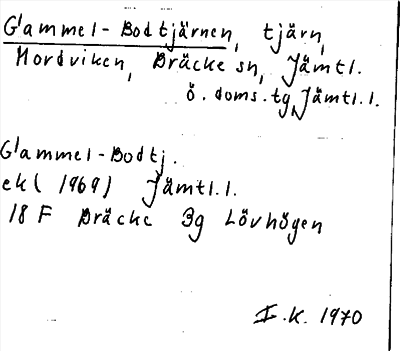 Gammel-Bodtjärnen, tjärn,
Mordviken, Bräcke sn, Jämtl.
ö. doms. tg, Jämtl. l.
Gammel-Bodtj.
ek (1969) Jämtl. l.
18 F Bräcke 3g Lövhögen
I.K. 1970